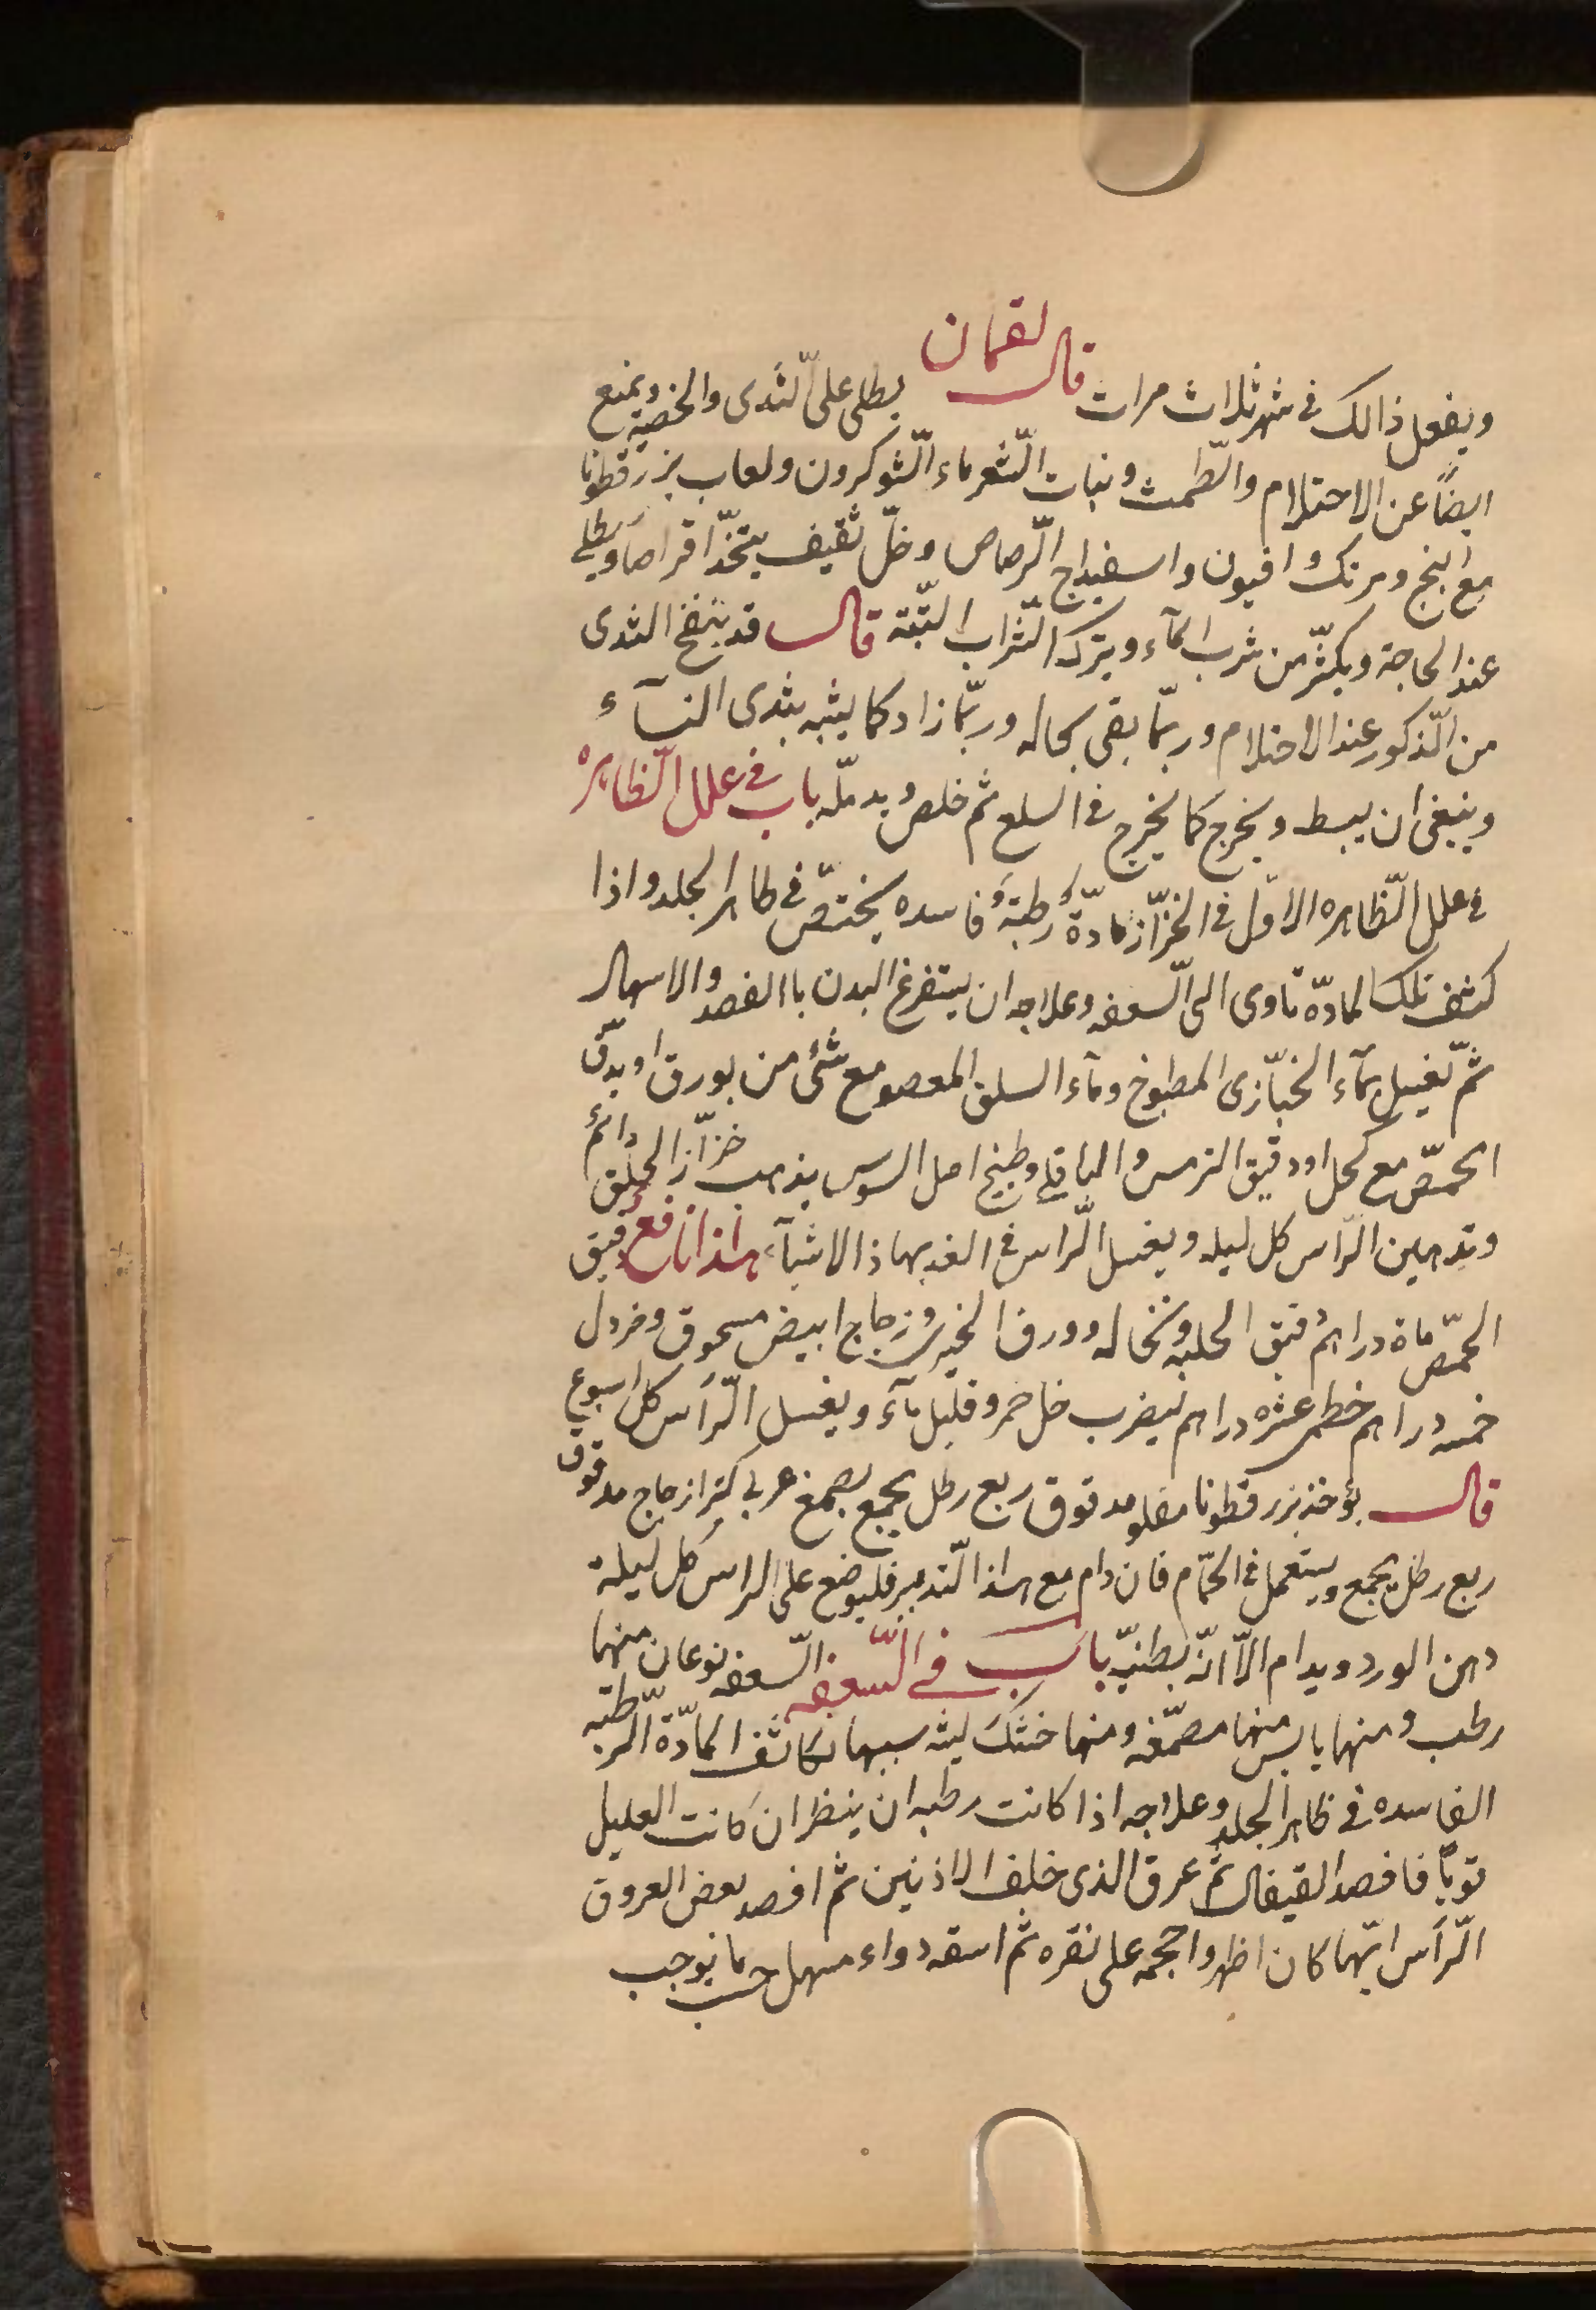 ويفعل ذالك فى شهر ثلاث مرات قال لقمان يطلى على الثّدى والخصية ويمنع
ايضاً عن الاحتلام والطّمث ونبات الشّعر ماء الشّوكرون ولعاب بزرقطونا
مع البنج ومرتك وافيون واسفيداج الرّصاص وخلّ ثقيف يتّخذ اقراصا ويطلى
عند الحاجة ويكثّر من شرب المآء ويترك الشّراب البتّة قال قد ينفخ الثدى
من الذّكور عند الاحتلام وربّما بقى بحاله وربّما زاد كما يشبه بثدى النسآء
وينبغى ان يبسط ويخرج كما يخرج فى السلع ثم خلص ويدمّله باب فى علل الظّاهره
فى علل الظّاهره الاوّل فى الخزّاز مادّةٌ رطبةٌ فاسده يختصّ فى ظاهر الجلد واذا
كثف تلك المادّة تاوى الى السّعفه وعلاجه ان يستفرغ البدن باالفصد والاسهال
ثمّ تغسل بمآء الخبّازى المطبوخ ومآء السلق المعصو مع شئ من بورق او بدقّ
الحمّص مع كحل او دقيق الترمس والباقلى وطبيخ اصل السوس يذهب خزّاز الحلق دائم
وتدهين الرّاس كل ليله ويغسل الرّاس فى الغد بهاذا الاشيآء هذا نافع دقيق
الحمّص ماة دراهم دقيق الحلبه ونخاله وورق الخيرى وزجاج ابيض مسحوق وخردل
خمسه دراهم خطمى عشره دراهم ليضرب خل خمر وقليل مآء ويغسل الرّاس كل اسبوع
قال يؤخذ بزرقطونا مغلو مدقوق ربع رطل يجمع بصمغ عربى كثيرا زجاج مدقوق
ربع رطل يجمع ويستعمل فى الحمّام فان دام مع هذا التّدبير فليوضع على الراس كل ليلة
دهن الورد ويدام الّا انّه بطنيّ باب فى السّعفه السّعفه نوعان منها
رطب ومنها يابس منها مصمّغه ومنها خشك ليثه سببها تكاثف المادّة الرّطبه
الفاسده فى ظاهر الجلد وعلاجه اذا كانت رطبه ان ينظر ان كانت العليل
قويّا فافصد القيفال ثم عرق الذى خلف الاذنين ثم افصد بعض العروق
الرّأس ايّهما كان اظهر واحجمه على نقره ثم اسقه دواء مسهل حسب ما يوجب